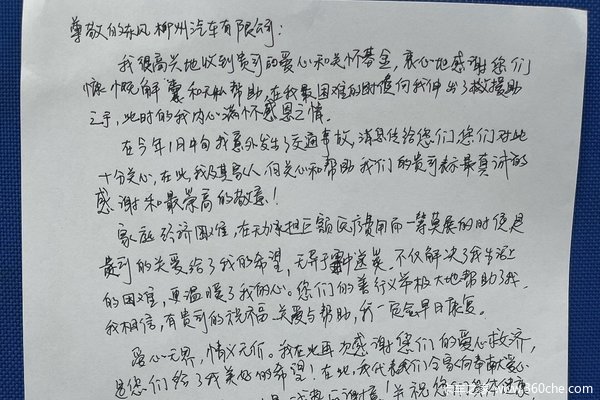 尊敬的东风柳州汽车有限公司：
我很高兴地收到贵司的爱心和关怀基金，衷心地感谢您们
慷慨解囊和无私帮助，在我最困难的时候向我伸出了救援助
之手，此时的我内心满怀感恩之情。
在今年1月中旬我意外发生了交通事故，消息传给您们，您们对此
十分关心，在此，我及其家人们关心和帮助我们的贵司表示最真诚的
感谢和最崇高的敬意！
家庭经济困难，在无力承担巨额医疗费用而一筹莫展的时候是
贵司的关爱给了我的希望，无异于雪中送炭。不仅解决了我生活上
的困难，更温暖了我的心。您们的善行义举极大地帮助了我。
我相信，有贵司的祝福、关爱与帮助，我一定会早日康复。
爱心无界，情义无价。我在此再次感谢您们的爱心救济，
是您们给了我美好的希望！在此，我代表我们全家向奉献爱心
谢意！并祝您们
卡车之家 www.360che.com